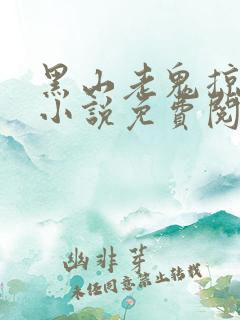 黑山老鬼掠
小说免费阅
幽非芽
未经同意禁止转载